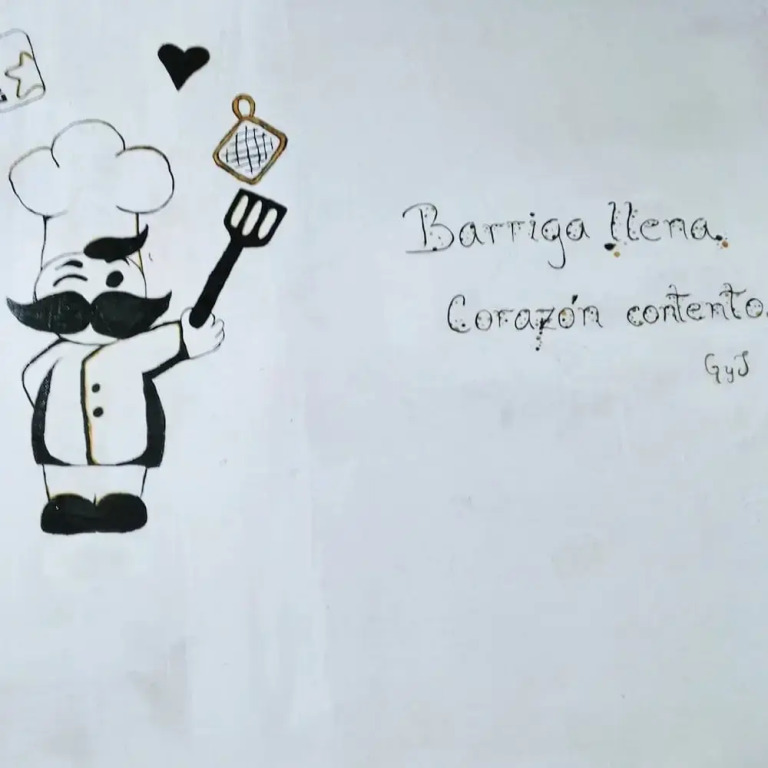 Barriga llena.
Corazón contento.
GyJ